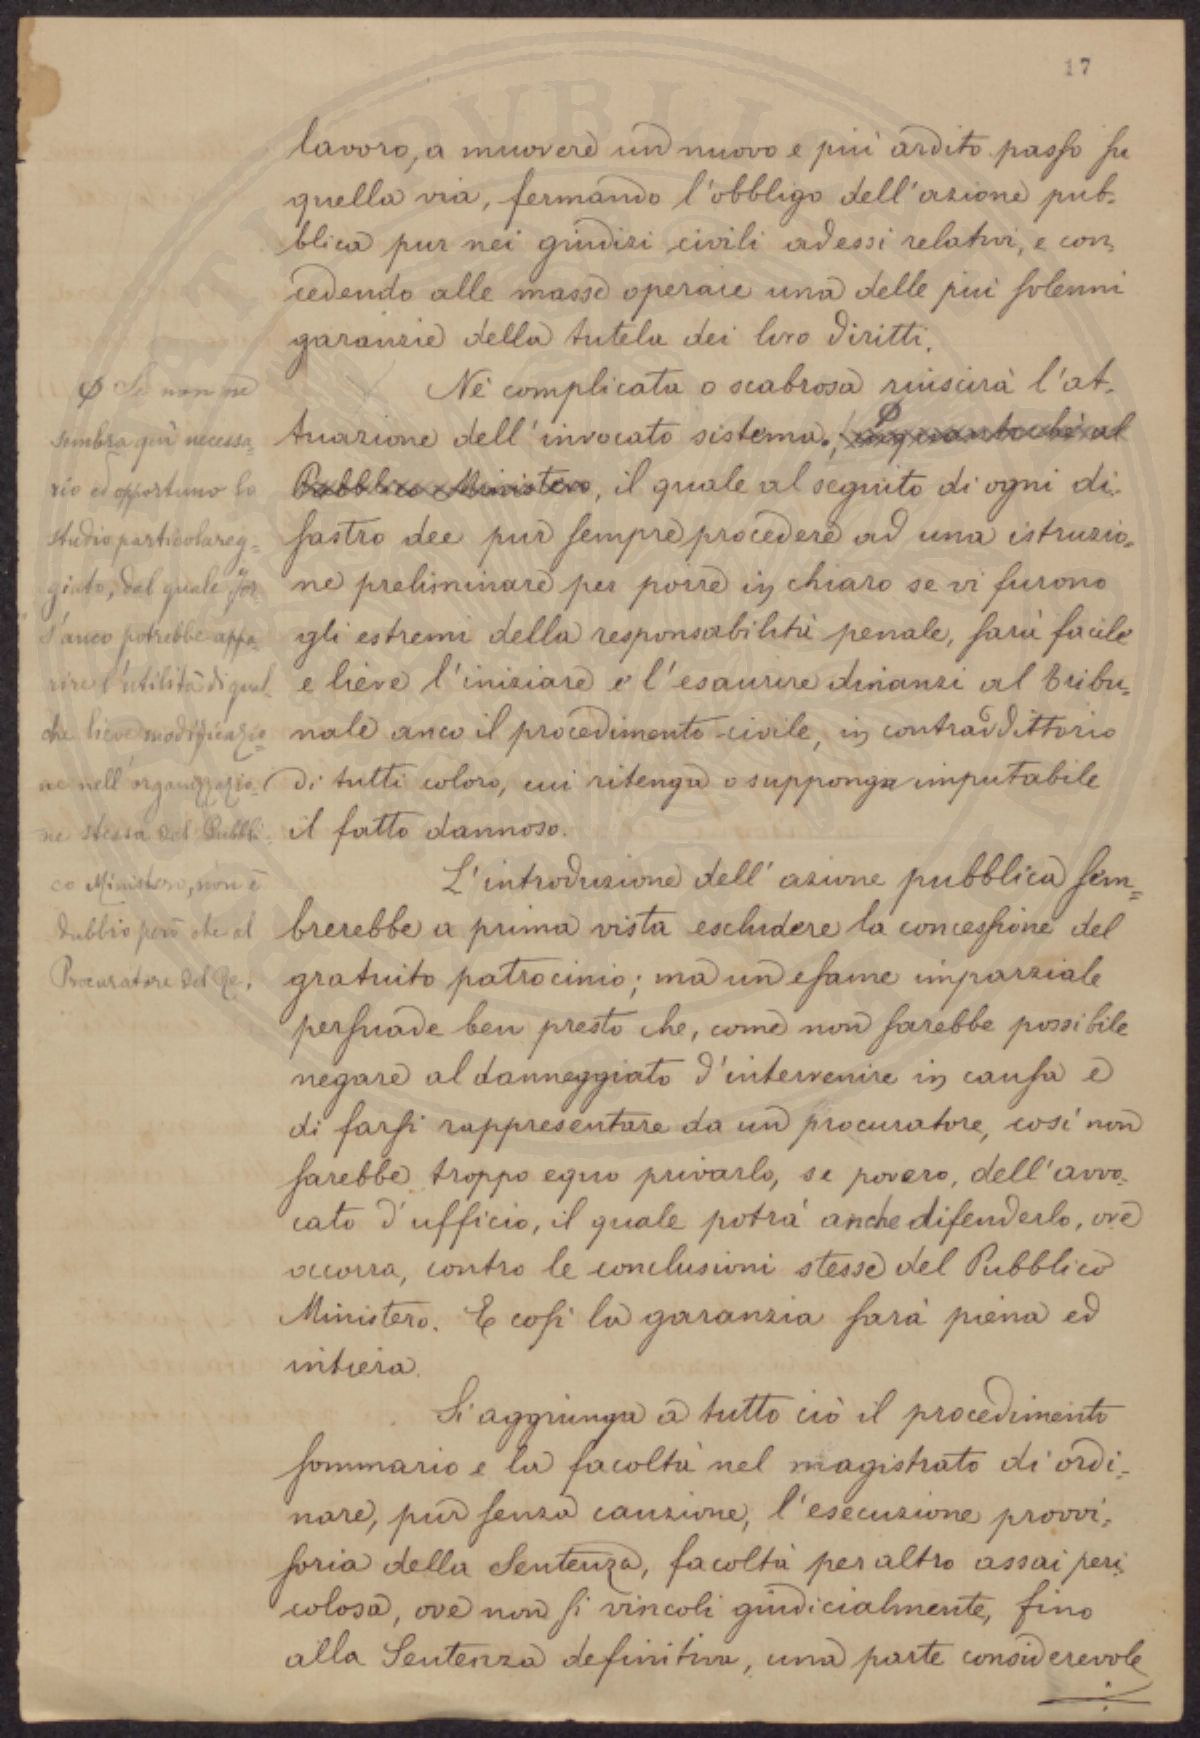 17
lavoro, a muovere un nuovo e più ardito passo su
quella via, fermando l'obbligo dell'azione pub-
blica pur nei giudizi civili ad essi relativi, e con-
cedendo alle masse operaie una delle più solenni
garanzie della tutela dei loro diritti.
Nè complicata o scabrosa riuscirà l'at-
tuazione dell'invocato sistema. inquantochè al
Pubblico Ministero, il quale al seguito di ogni di-
sastro dee pur sempre procedere ad una istruzio-
ne preliminare per porre in chiaro se vi furono
gli estremi della responsabilità penale, sarà facile
e lieve l'iniziare e l'esaurire dinanzi al Tribu-
nale anco il procedimento civile, in contraddittorio
di tutti coloro, cui ritenga o supponga imputabile
il fatto dannoso.
L'introduzione dell'azione pubblica sem-
brerebbe a prima vista escludere la concessione del
gratuito patrocinio; ma un esame imparziale
persuade ben presto che, come non sarebbe possibile
negare al danneggiato d'intervenire in causa e
di farsi rappresentare da un procuratore, così non
sarebbe troppo equo privarlo, se povero, dell'avvo-
cato d'ufficio, il quale potrà anche difenderlo, ove
occorra, contro le conclusioni stesse del Pubblico
Ministero. E così la garanzia sarà piena ed
intiera.
Si aggiunga a tutto ciò il procedimento
sommario e la facoltà nel magistrato di ordi-
nare, pur senza cauzione, l'esecuzione provvi-
soria della Sentenza, facoltà per altro assai peri-
colosa, ove non si vincoli giudicialmente, fino
alla Sentenza definitiva, una parte considerevole
Se non ne
sembra qui necessa-
rio ed opportuno lo
studio particolareg-
giato, dal quale for-
s'anco potrebbe appa-
rire l'utilità di qual-
che lieve modificazio-
ne nell'organizzazio-
ne stessa del Pubbli-
co Ministero, non è
dubbio però che al
Procuratore del Re,